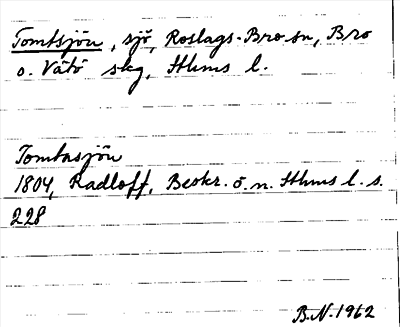 Tomtsjön, sjö, Roslags-Bro sn, Bro
o. Vätö skg, Sthms l.
Tomtasjön
1804, Radloff, Beskr. ö. n. Sthms l. s.
228
B.N. 1962